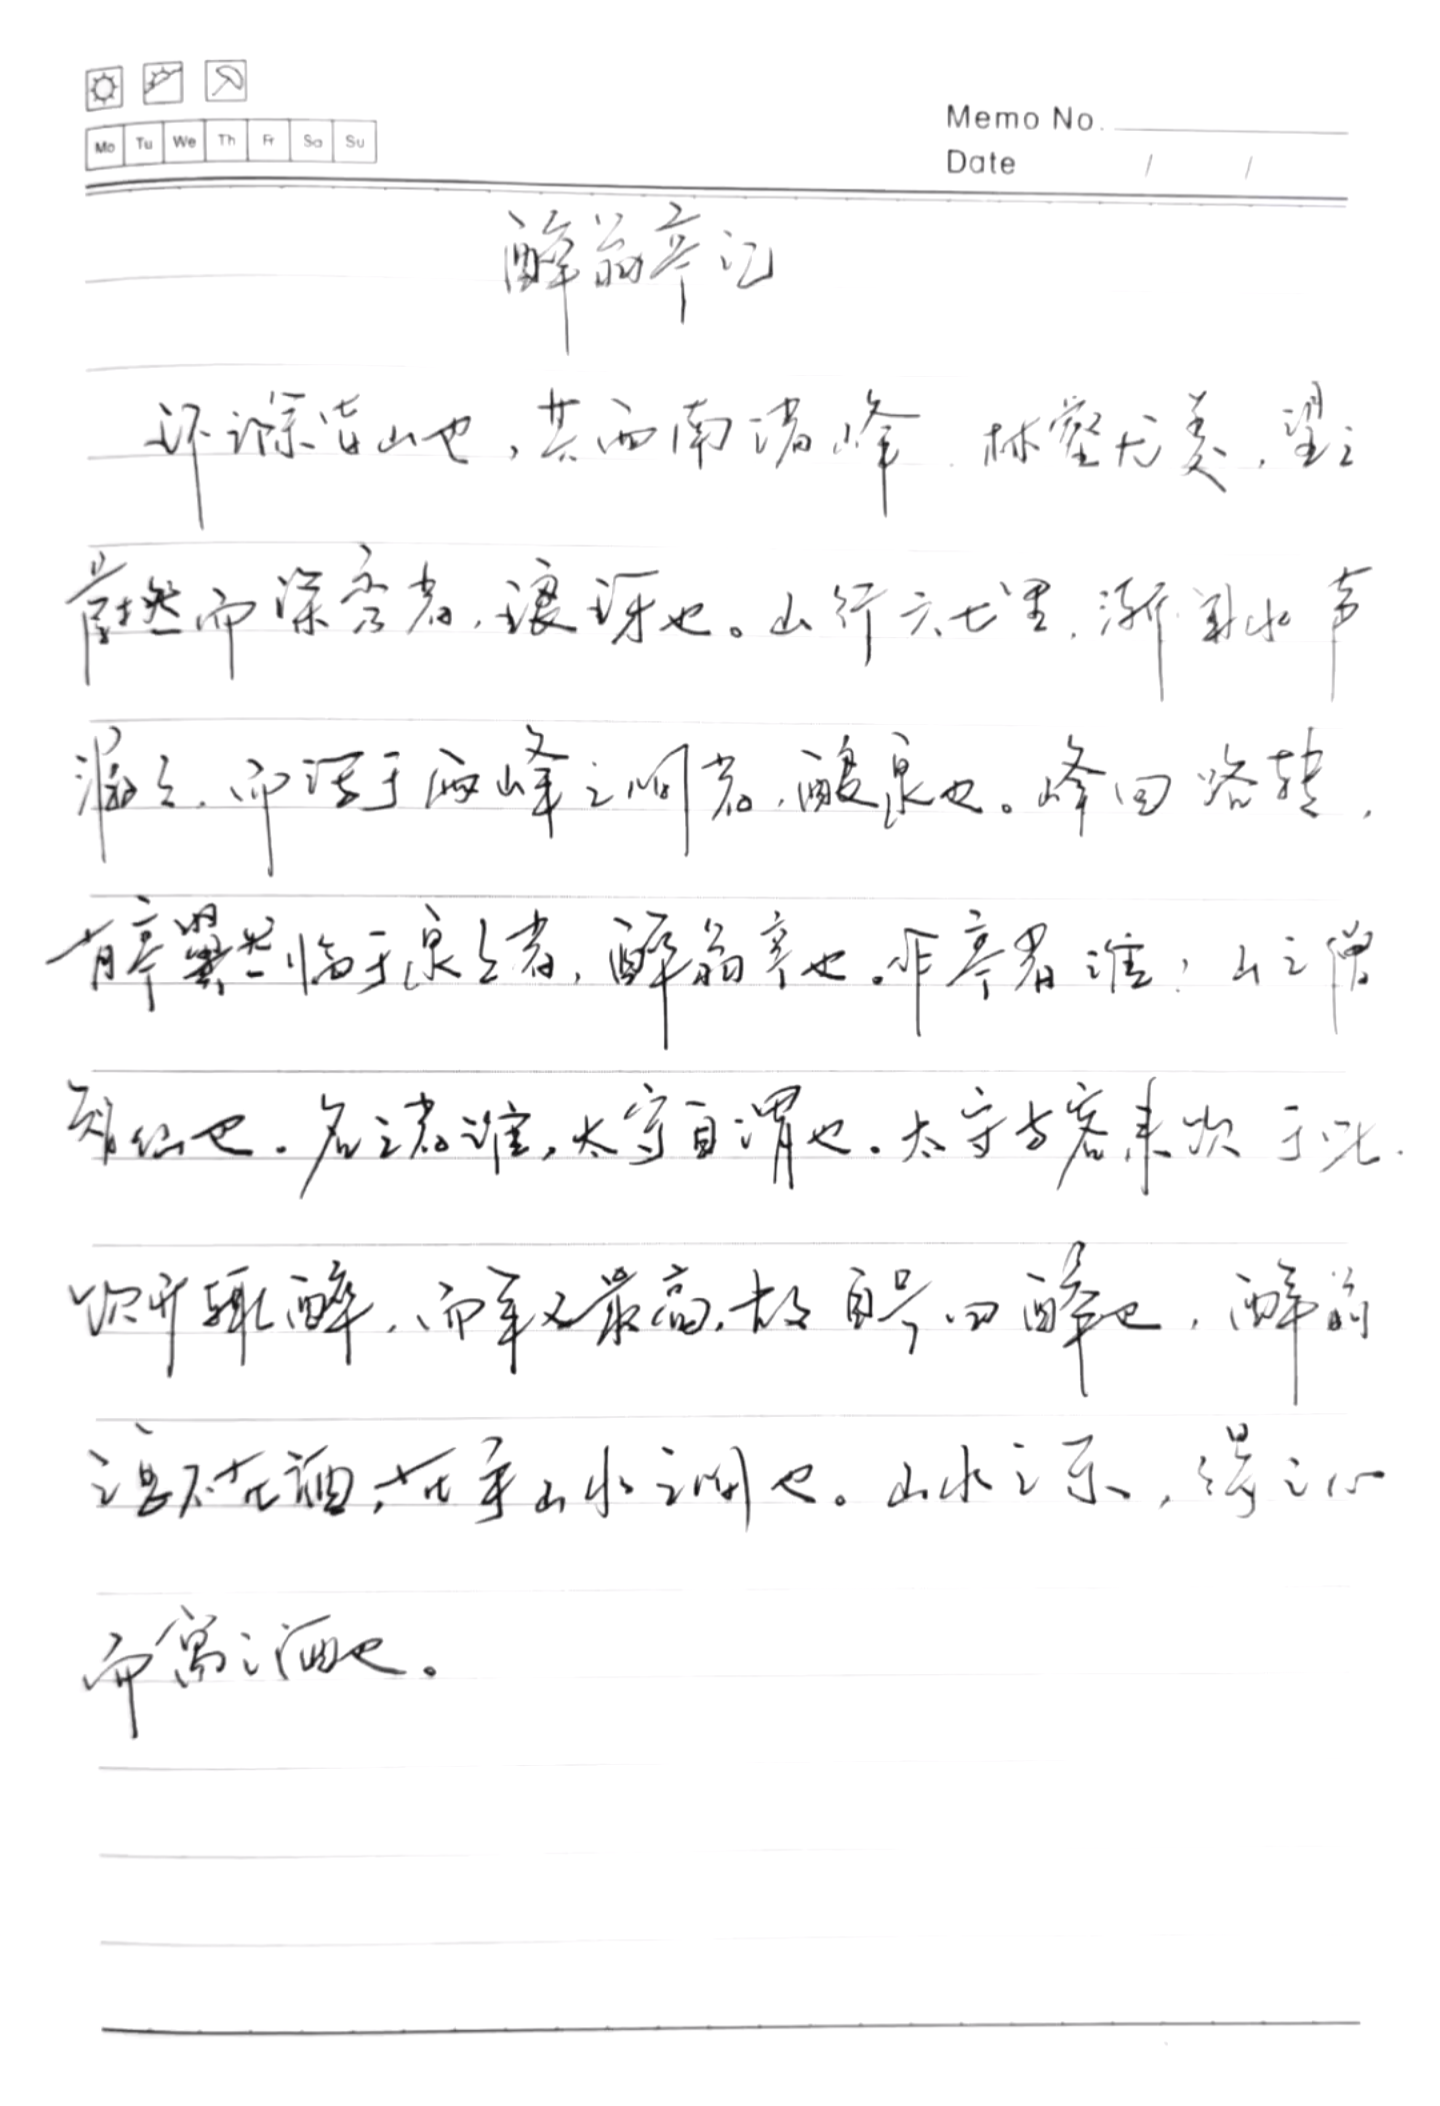 Memo No.
Mo Tu We Th Fr Sa Su
Date / /
醉翁亭记
环滁皆山也,其西南诸峰,林壑尤美,望之
蔚然而深秀者,琅琊也。山行六七里,渐闻水声
潺潺,而泻于两峰之间者,酿泉也。峰回路转,
有亭翼然临于泉上者,醉翁亭也。作亭者谁?山之僧
智仙也。名之者谁,太守自谓也。太守与客来饮于此,
饮少辄醉,而年又最高,故自号曰醉也,醉翁
之意不在酒,在乎山水之间也。山水之乐,得之心
而寓之酒也。